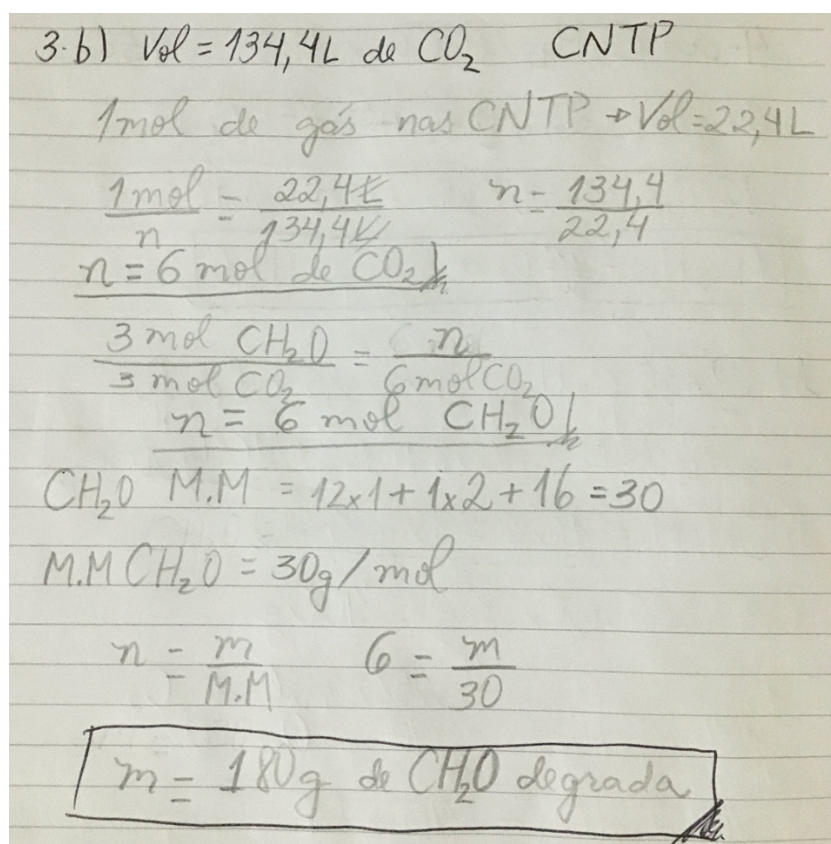 3.b) Vol = 134,4L de CO₂ CNTP
1mol de gás nas CNTP → Vol = 22,4L
1mol/n = 22,4L/134,4L n = 134,4/22,4
n = 6 mol de CO₂
3 mol CH₂O/3 mol CO₂ = n/6molCO₂
n = 6 mol CH₂O
CH₂O M.M = 12x1 + 1x2 + 16 = 30
M.M CH₂O = 30g/mol
n = m/M.M 6 = m/30
m = 180g de CH₂O degrada